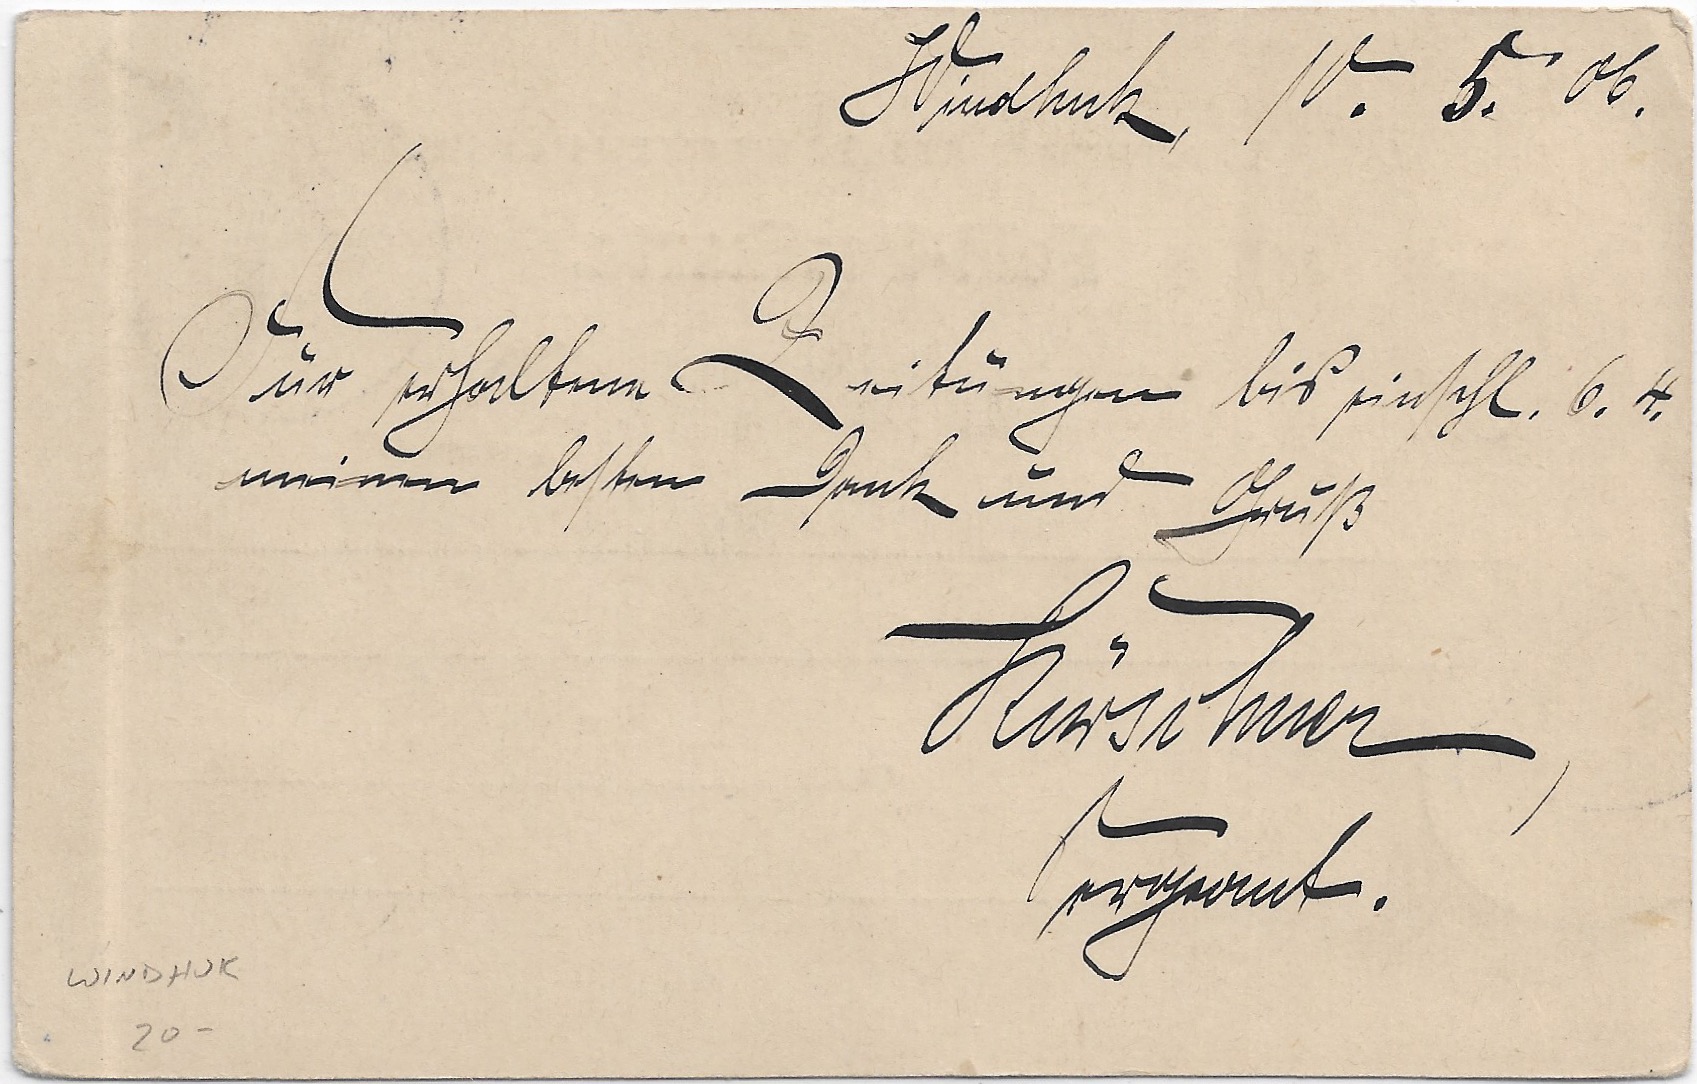 Windhuk, 10. 5. 06.
Für erhaltene Zeitungen bis einschl. 6. 4.
meinen besten Dank und Gruß
Kürschner,
Sergeant.
WINDHUK
20-